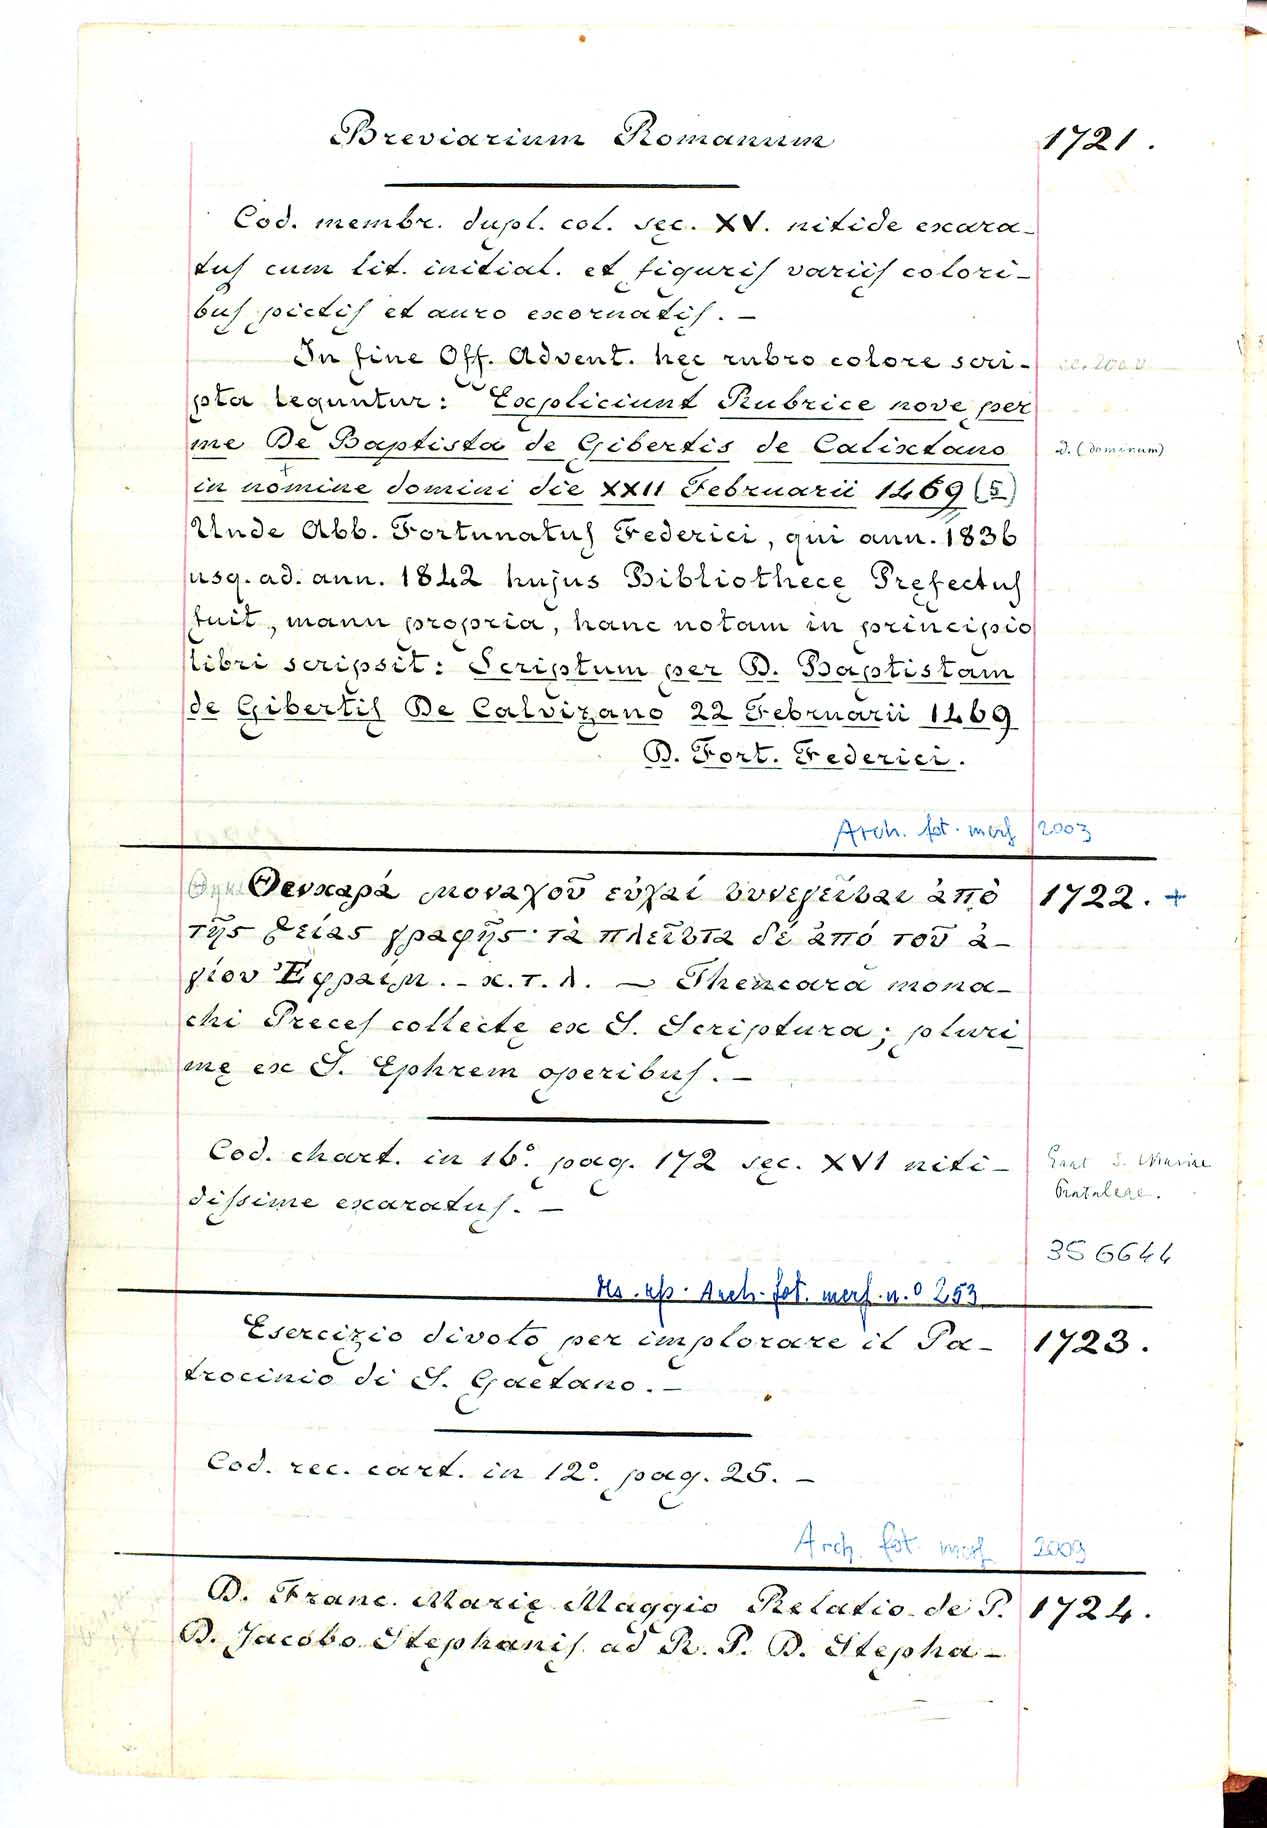 Breviarium Romanum 1721.
Cod. membr. dupl. col. sęc. XV. nitide exara-
tus cum lit. initial. et figuris variis colori-
bus pictis et auro exornatis. -
In fine Off. Advent. hęc rubro colore scri-
pta leguntur: Expliciunt Rubrice nove per
me De Baptista de Gibertis de Calixtano
d. (dominum)
in nomine domini die XXII Februarii 1469 (5)
Unde Abb. Fortunatus Federici, qui ann. 1836
usq. ad. ann. 1842 hujus Bibliothecę Pręfectus
fuit, manu propria, hanc notam in principio
libri scripsit: Scriptum per D. Baptistam
de Gibertis De Calvizano 22 Februarii 1469
D. Fort. Federici.
Arch. fot. mers 2003
Θευκαρά μοναχοῦ εὐχαί συνεγεῖσαι ἀπὸ 1722. +
τῆς θείας γραφῆς· τὰ πλεῖστα δέ ἀπό τοῦ ἁ-
γίου Ἐφραίμ. - κ. τ. λ. — Thencara mona-
chi Preces collectę ex S. Scriptura; pluri-
mę ex S. Ephrem operibus. -
Cod. chart. in 16.° pag. 172 sęc. XVI niti-
dissime exaratus. -
356644
Arch. fot. mers. n.° 253
Esercizio divoto per implorare il Pa- 1723.
trocinio di S. Gaetano. -
Cod. rec. cart. in 12.° pag. 25. -
Arch. fot. mers 2009
D. Franc. Marię Maggio Relatio de P. 1724.
D. Jacobo Stephanis ad R. P. D. Stepha-